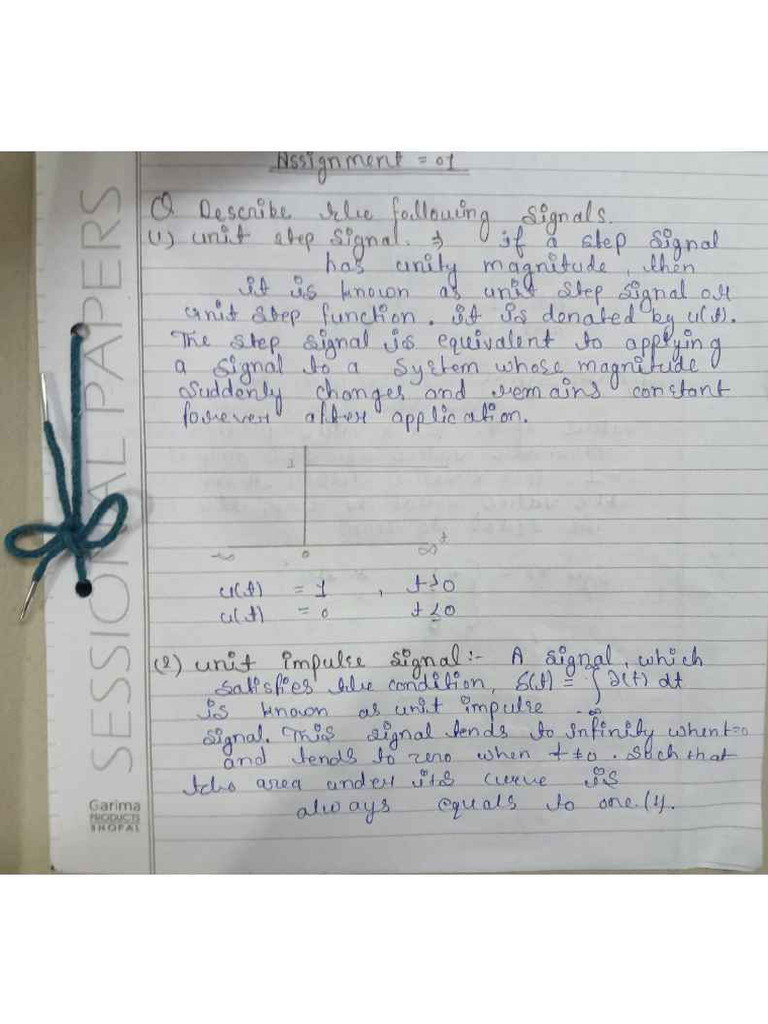 Assignment = 01
Q. Describe the following signals.
(1) unit step signal. ⇒ if a step signal
has unity magnitude, then
it is known as unit step signal or
unit step function. it is denated by u(t).
The step signal is equivalent to applying
a signal to a system whose magnitude
suddenly changes and remains constant
forever after application.
1
t
-∞ 0 ∞
u(t) = 1 , t≥0
u(t) = 0 t≤0
(2) unit impulse signal:- A signal, which
satisfies the condition, δ(t) = ∫ ∂(t) dt
-∞
is known as unit impulse
signal. This signal tends to infinity when t=0
and tends to zero when t≠0. Such that
the area under its curve is
always equals to one.(1).
SESSIONAL PAPERS
Garima
PRODUCTS
BHOPAL